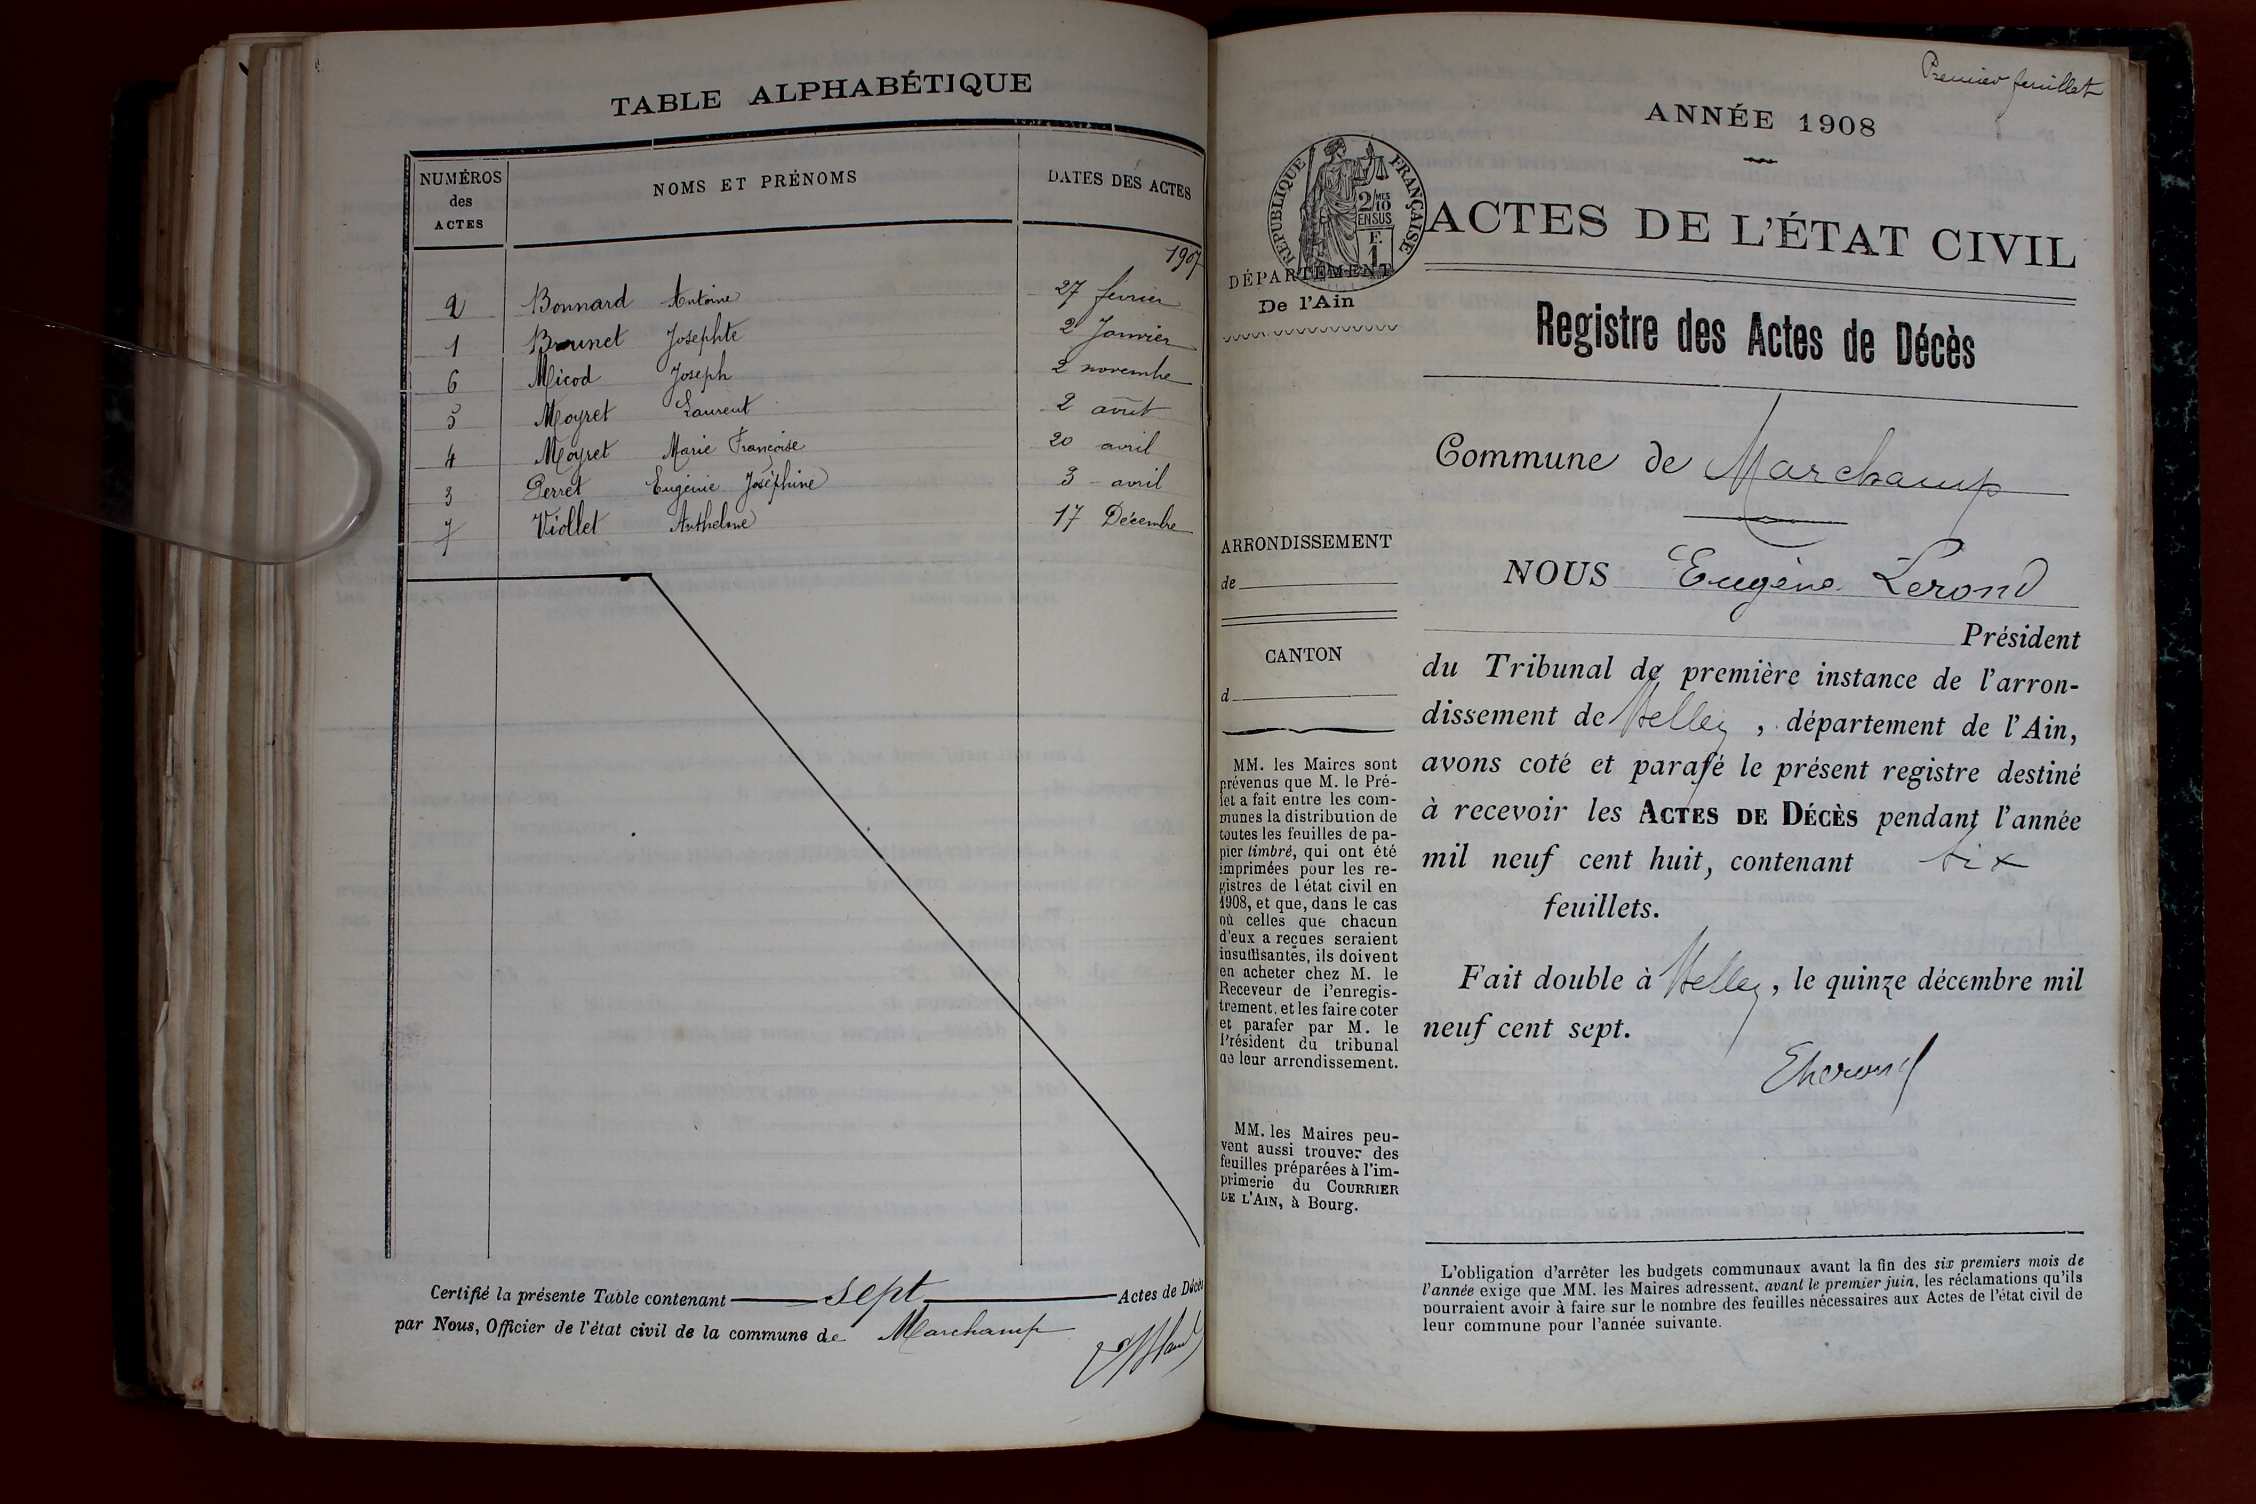 TABLE ALPHABÉTIQUE
NUMÉROS des ACTES
NOMS ET PRÉNOMS
DATES DES ACTES
1907
2 Bonnard Antoine 27 février
1 Brunet Josephte 2 Janvier
6 Micod Joseph 2 novembre
5 Moyret Laurent 2 août
4 Moyret Marie Françoise 20 avril
3 Perret Eugénie Joséphine 3 avril
7 Viollet Anthelme 17 Décembre
Certifié la présente Table contenant sept Actes de Décès
par Nous, Officier de l'état civil de la commune de Marchamp
Premier feuillet
ANNÉE 1908
RÉPUBLIQUE FRANÇAISE
2/10 MES
EN SUS
F. 1
ACTES DE L'ÉTAT CIVIL
DÉPARTEMENT
De l'Ain
Registre des Actes de Décès
Commune de Marchamp
ARRONDISSEMENT
de
CANTON
d
MM. les Maires sont
prévenus que M. le Pré-
fet a fait entre les com-
munes la distribution de
toutes les feuilles de pa-
pier timbré, qui ont été
imprimées pour les re-
gistres de l'état civil en
1908, et que, dans le cas
où celles que chacun
d'eux a reçues seraient
insuffisantes, ils doivent
en acheter chez M. le
Receveur de l'enregis-
trement, et les faire coter
et parafer par M. le
Président du tribunal
de leur arrondissement.
MM. les Maires peu-
vent aussi trouver des
feuilles préparées à l'im-
primerie du COURRIER
DE L'AIN, à Bourg.
NOUS Eugène Lerond
Président
du Tribunal de première instance de l'arron-
dissement de Belley, département de l'Ain,
avons coté et parafé le présent registre destiné
à recevoir les ACTES DE DÉCÈS pendant l'année
mil neuf cent huit, contenant six
feuillets.
Fait double à Belley, le quinze décembre mil
neuf cent sept.
L'obligation d'arrêter les budgets communaux avant la fin des six premiers mois de
l'année exige que MM. les Maires adressent, avant le premier juin, les réclamations qu'ils
pourraient avoir à faire sur le nombre des feuilles nécessaires aux Actes de l'état civil de
leur commune pour l'année suivante.